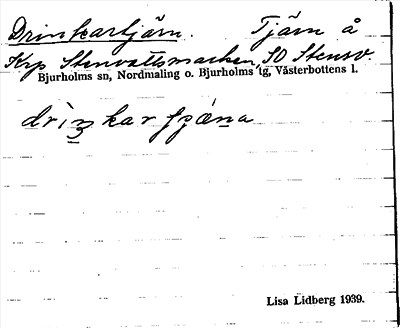 Drinkartjärn. Tjärn å
Krp Stenvattsmarken, SO Stensv.
Bjurholms sn, Nordmaling o. Bjurholms tg, Västerbottens l.
Lisa Lidberg 1939.